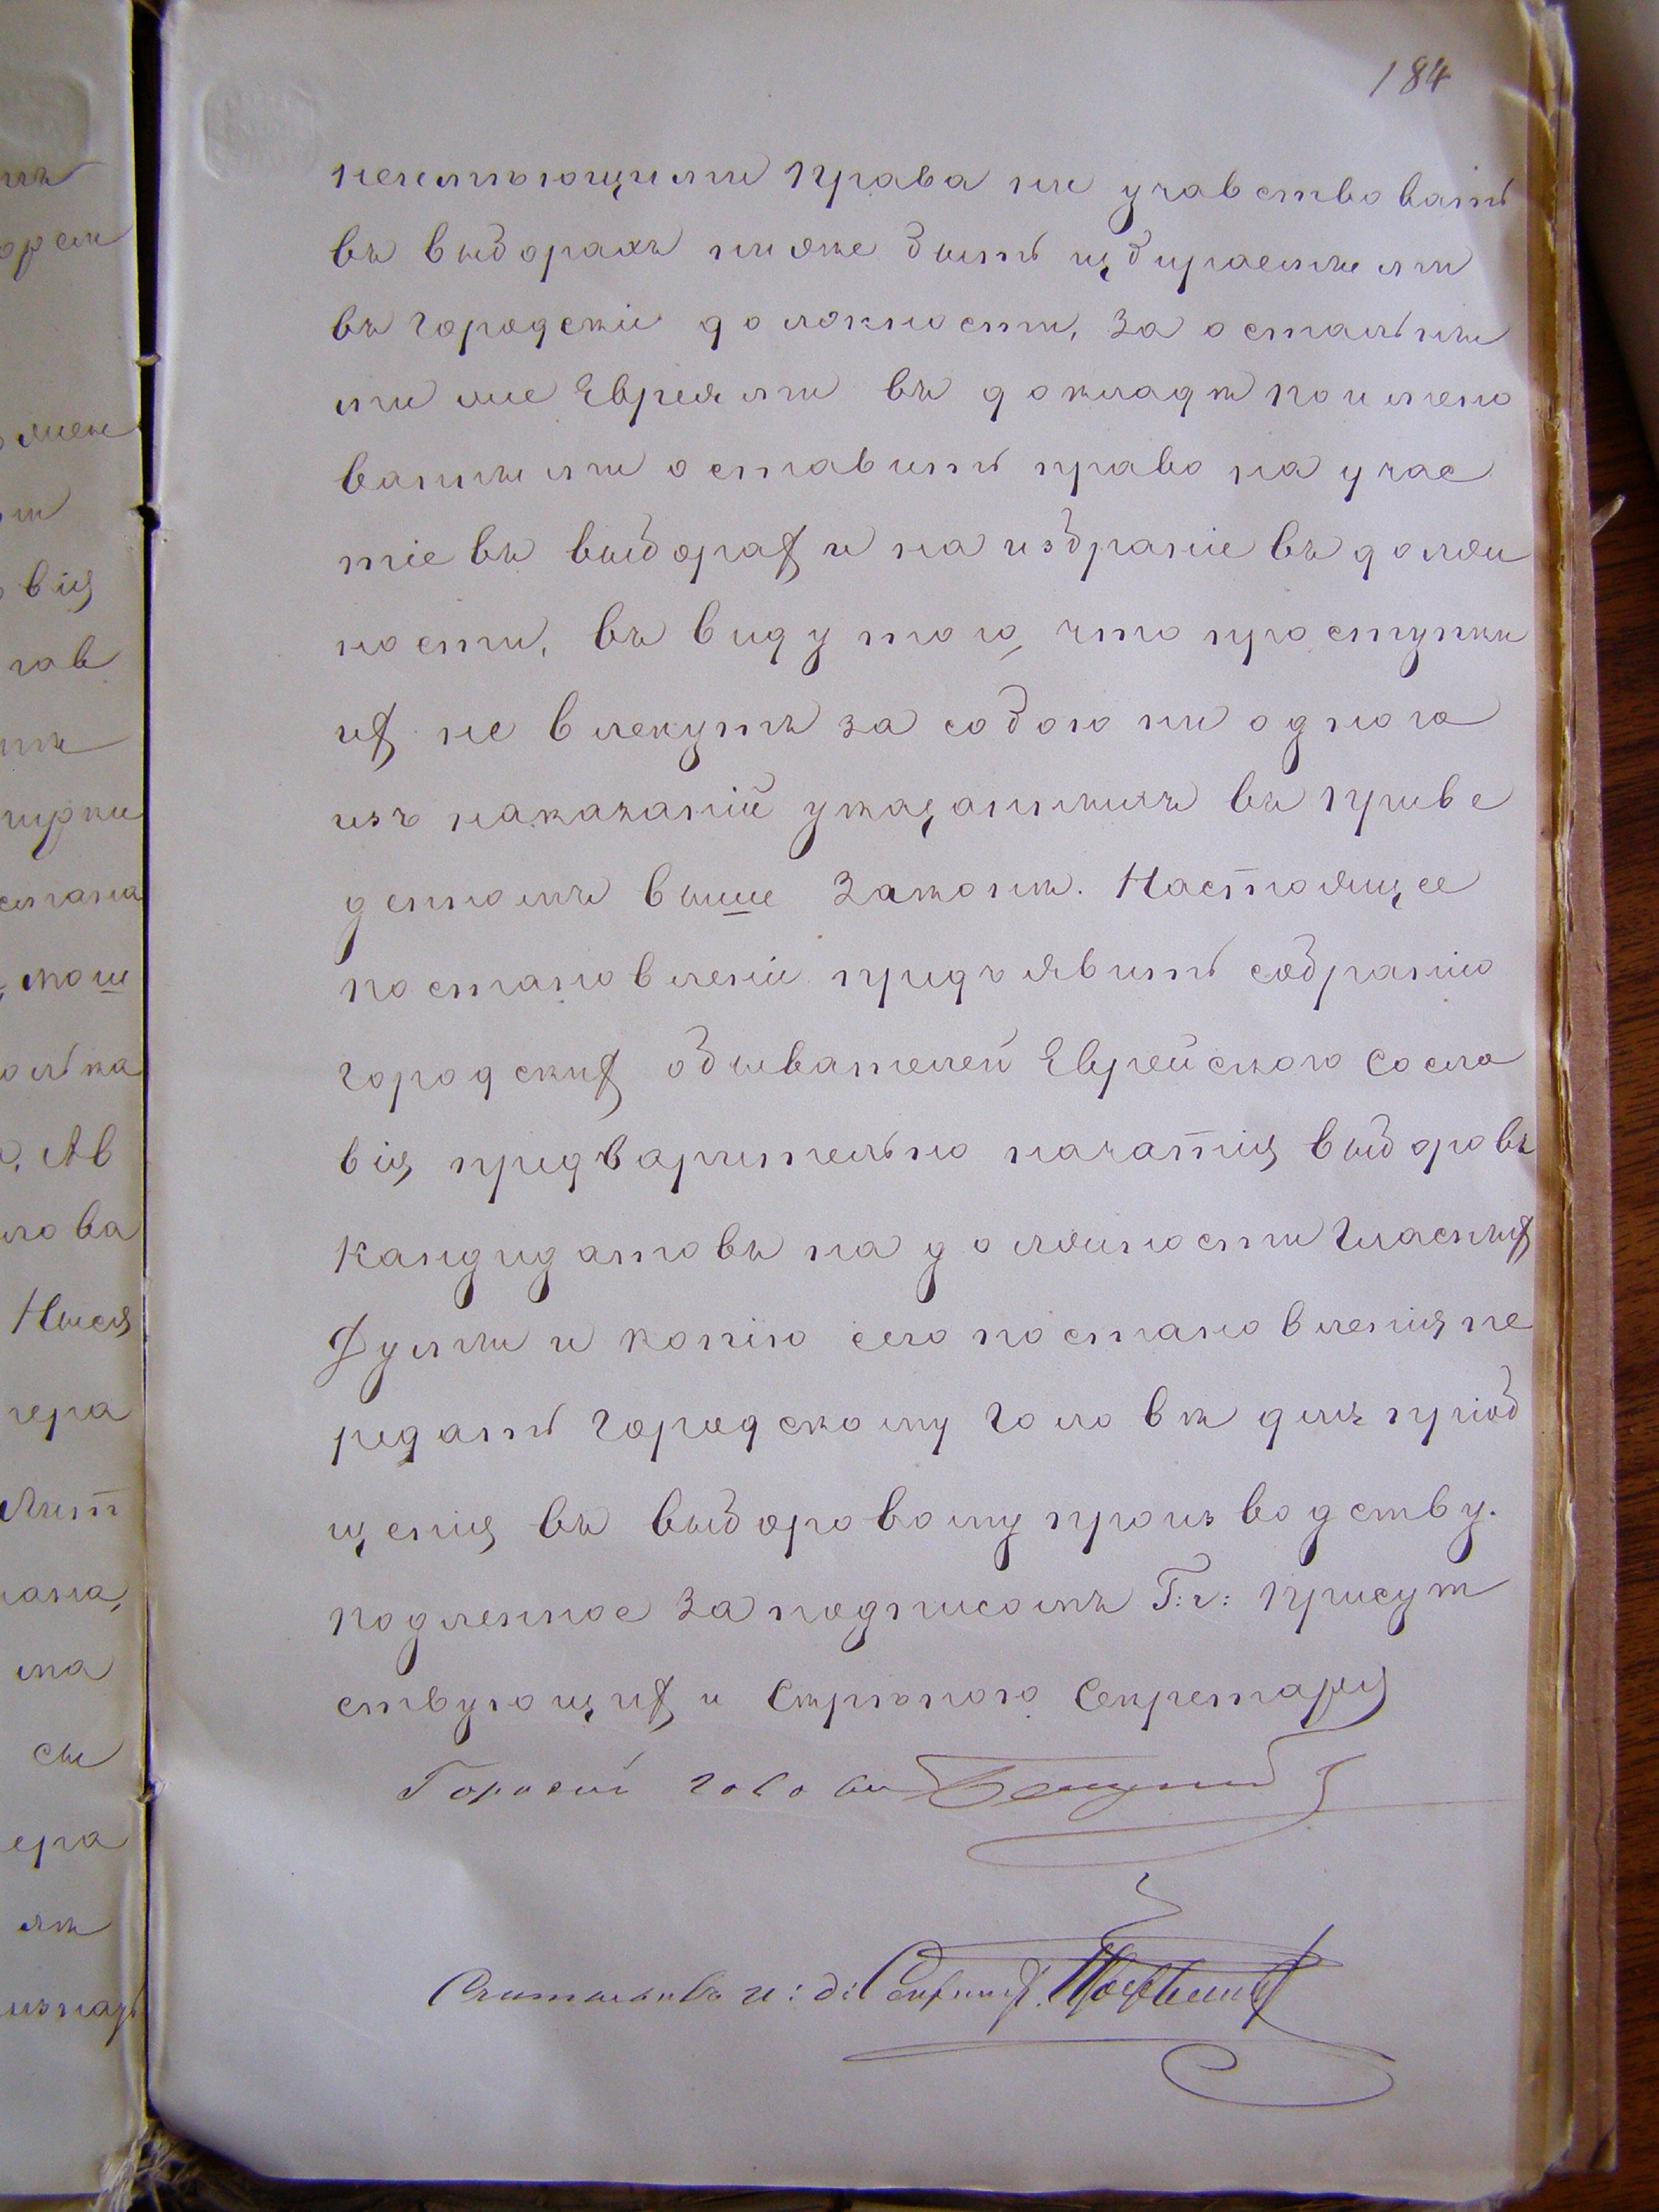 184
неимѣющими права ни учавствовать
въ выборахъ ниже быть избираемыми
въ городскіе должности, за остальны
ми же Евреями въ докладѣ поимено
ванными оставить право на учас
тіе въ выборах и на избраніе въ долж
ности, въ виду того, что проступки
их не влекутъ за собою ни одного
изъ наказаній указанныхъ въ приве
денномъ выше законѣ. Настоящее
постановленіе предъявить собранію
городских обывателей Еврейского сосло
вія предварительно начатія выборовъ
кандидатовъ на должности Гласных
Думы и копію сего постановленія пе
редать Городскому Головѣ для пріоб
щенія въ выборовому производству.
Подленное за подписомъ Г:г: присут
ствующих и скрѣпою Секретаря
Городской голова
Считывалъ и: д: Секретар.
мъ
вія
гав
олька
Ав
лова
Ныся
гера
Лит
на
сы
ера